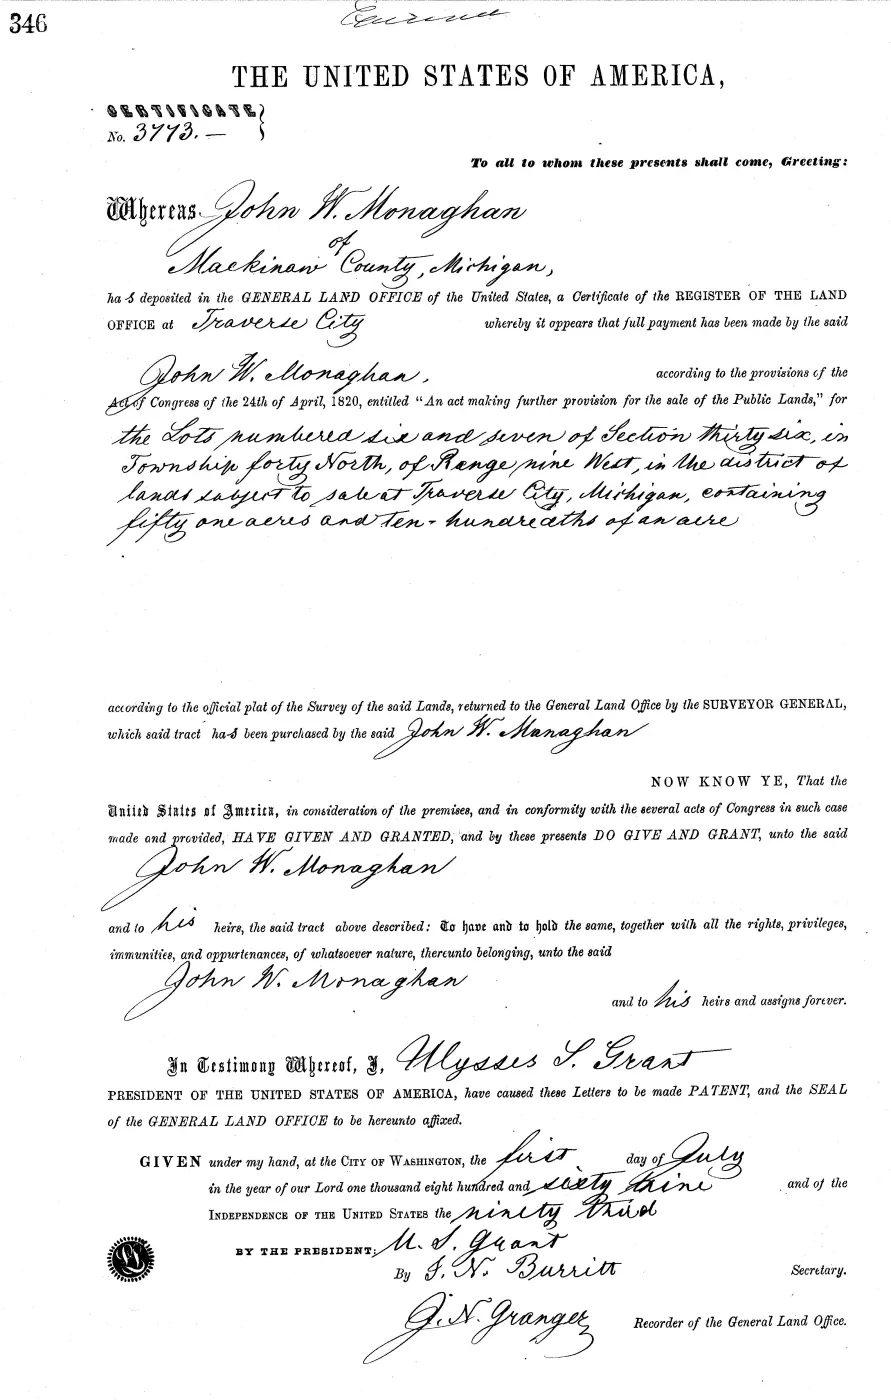 346
THE UNITED STATES OF AMERICA,
CERTIFICATE
No. 3773. —
To all to whom these presents shall come, Greeting:
Whereas John W. Monaghan
of
Mackinaw County, Michigan,
ha s deposited in the GENERAL LAND OFFICE of the United States, a Certificate of the REGISTER OF THE LAND
OFFICE at Traverse City whereby it appears that full payment has been made by the said
John W. Monaghan, according to the provisions of the
Act of Congress of the 24th of April, 1820, entitled "An act making further provision for the sale of the Public Lands," for
the Lots numbered six and seven of Section thirty six, in
Township forty North, of Range nine West, in the district of
lands subject to sale at Traverse City, Michigan, containing
fifty one acres and ten-hundredths of an acre
according to the official plat of the Survey of the said Lands, returned to the General Land Office by the SURVEYOR GENERAL,
which said tract ha s been purchased by the said John W. Monaghan
NOW KNOW YE, That the
United States of America, in consideration of the premises, and in conformity with the several acts of Congress in such case
made and provided, HAVE GIVEN AND GRANTED, and by these presents DO GIVE AND GRANT, unto the said
John W. Monaghan
and to his heirs, the said tract above described: To have and to hold the same, together with all the rights, privileges,
immunities, and oppurtenances, of whatsoever nature, thereunto belonging, unto the said
John W. Monaghan
and to his heirs and assigns forever.
In Testimony Whereof, I, Ulysses S. Grant
PRESIDENT OF THE UNITED STATES OF AMERICA, have caused these Letters to be made PATENT, and the SEAL
of the GENERAL LAND OFFICE to be hereunto affixed.
GIVEN under my hand, at the CITY OF WASHINGTON, the first day of July
in the year of our Lord one thousand eight hundred and sixty nine and of the
INDEPENDENCE OF THE UNITED STATES the ninety third
BY THE PRESIDENT: U. S. Grant
By F. N. Burritt Secretary.
J. N. Granger Recorder of the General Land Office.